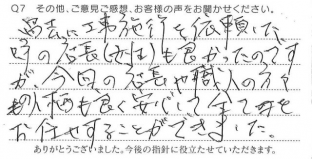 Q7 その他、ご意見ご感想、お客様の声をお聞かせください。
過去に工事施行を依頼した
時の店長(女性)も良かったのです
が、今回の店長や職人の方々
も人柄も良く安心して全てを
お任せすることができました。
ありがとうございました。今後の指針に役立たせていただきます。